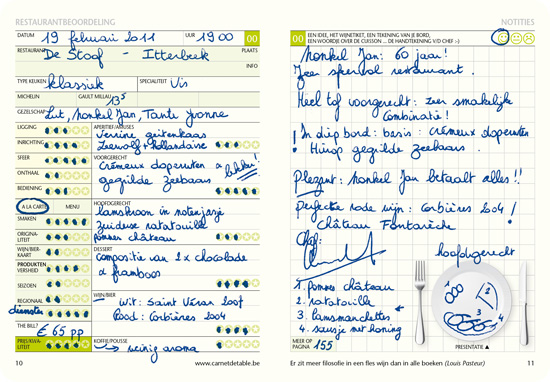 RESTAURANTBEOORDELING
DATUM 19 februari 2011 UUR 19 00
RESTAURANT De Stoof - Itterbeek PLAATS
INFO
TYPE KEUKEN klassiek SPECIALITEIT Vis
MICHELIN GAULT MILLAU 13,5
GEZELSCHAP Lut, nonkel Jan, Tante Yvonne
LIGGING APERITIEF/AMUSES
Verrine geitenkaas
INRICHTING Zeewolf + hollandaise
SFEER VOORGERECHT
crémeux doperwten &
ONTHAAL gegrilde zeebaars
BEDIENING
A LA CARTE MENU HOOFDGERECHT
lamskroon in notenjasje
SMAKEN zuiderse ratatouille
ORIGINALITEIT pommes château
WIJN/BIERKAART DESSERT
compositie van 2 x chocolade
PRODUKTENVERSHEID & framboos
SEIZOEN
REGIONAAL WIJN/BIER
diensten wit: Saint Véran 2007
Rood: Corbières 2004
THE BILL? € 65 pp
PRIJS/KWALITEIT KOFFIE/POUSSE weinig aroma
10 www.carnetdetable.be
NOTITIES
00 EEN IDEE, HET WIJNETIKET, EEN TEKENING VAN JE BORD,
EEN WOORDJE OVER DE CURSOR ... DE HANDTEKENING V/D CHEF ;-)
nonkel Jan: 60 jaar!
Zeer sfeervol restaurant.
Heel tof voorgerecht: zeer smakelijke
combinatie!
! In diep bord: basis: crémeux doperwten
Hierop gegrilde zeebaars.
Plezant: nonkel Jan betaalt alles!!
perfecte rode wijn: Corbières 2004!
Château Fontarèche
Chef:
hoofdgerecht
1. pommes château
2. ratatouille
3. lamsmanchettes
4. sausje met honing
MEER OP PAGINA 155 PRESENTATIE
Er zit meer filosofie in een fles wijn dan in alle boeken (Louis Pasteur) 11